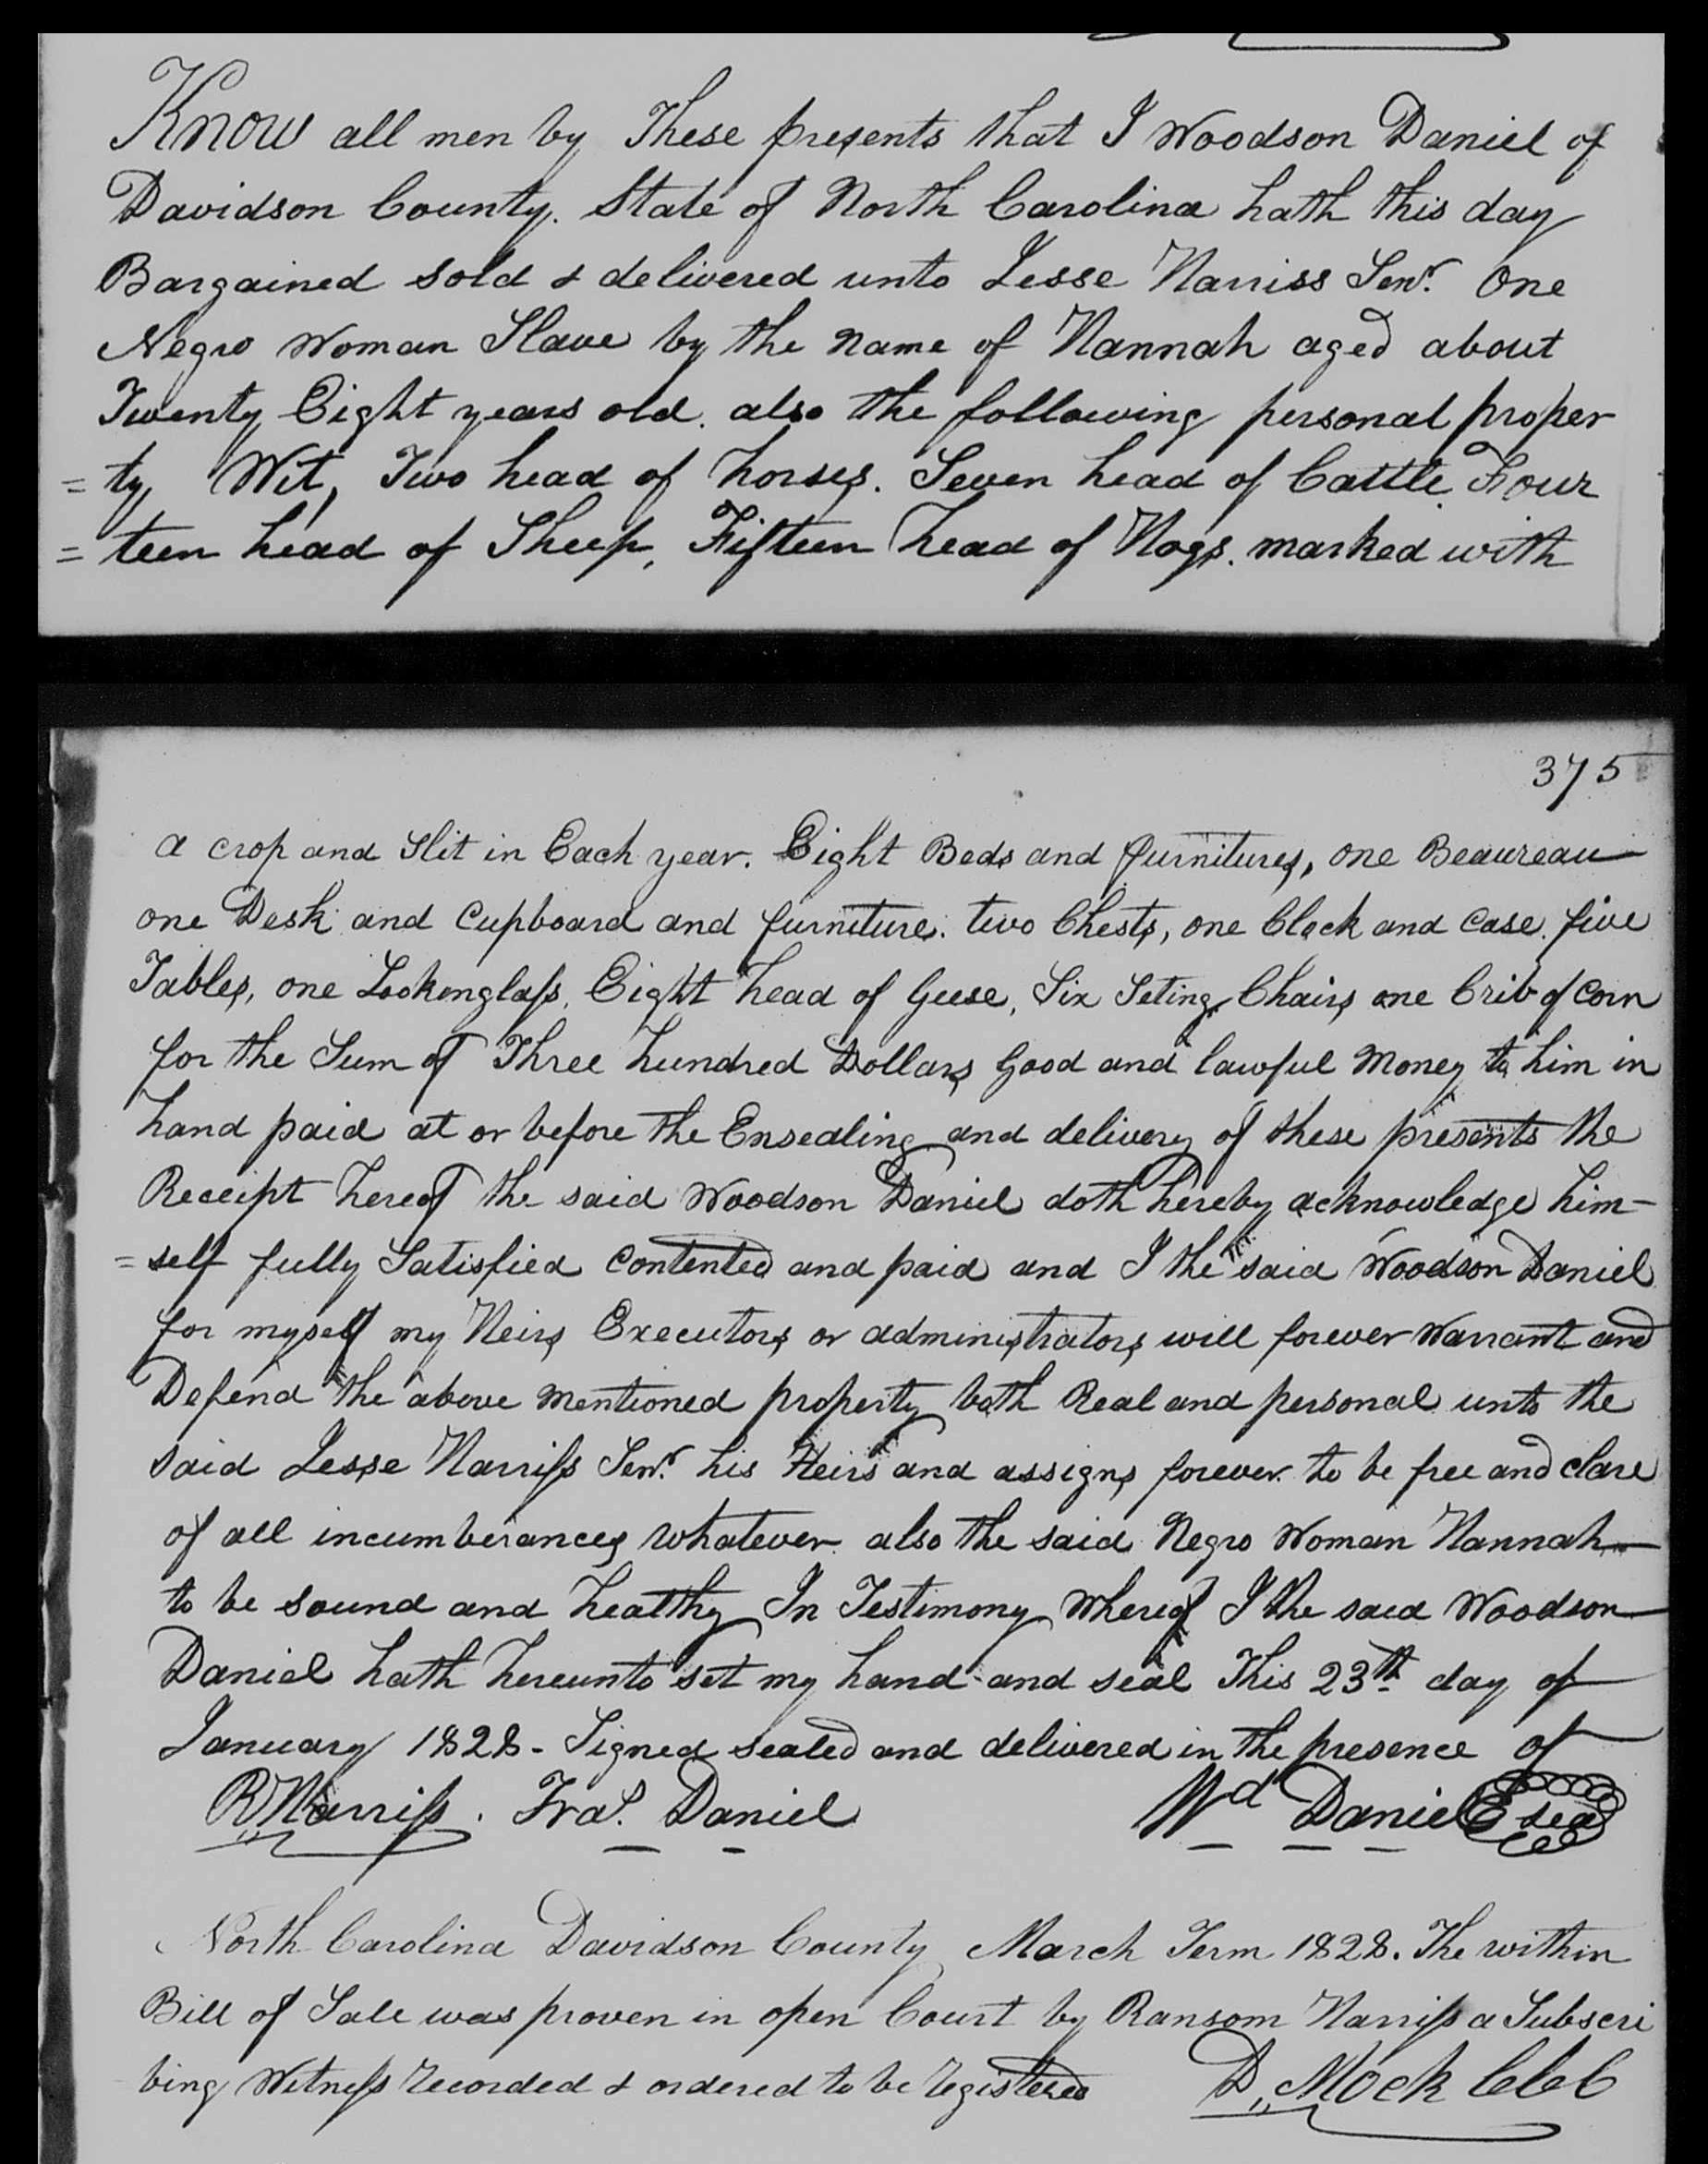 Know all men by These presents that I Woodson Daniel of
Davidson County. State of North Carolina hath this day
Bargained sold & delivered unto Jesse Harriss Senr. One
Negro Woman Slave by the name of Hannah aged about
Twenty Eight years old. also the following personal proper
= ty Wit, Two head of horses. Seven head of Cattle Four
= teen head of Sheep, Fifteen head of Hogs. marked with
375
a crop and Slit in Each year. Eight Beds and furnitures, one Beaureau
one Desk and Cupboard and furniture. two Chests, one Clock and Case. five
Tables, one Lookenglass, Eight head of Geese, Six Seting Chairs one Crib of Corn
for the Sum of Three hundred Dollars Good and lawful Money to him in
hand paid at or before the Ensealing and delivery of these presents the
Receipt hereof the said Woodson Daniel doth hereby acknowledge him-
= self fully Satisfied Contented and paid and I the said Woodson Daniel
for myself my Heirs Executors or administrators will forever Warrant and
Defend the above mentioned property both Real and personal unto the
said Jesse Harriss Senr. his Heirs and assigns forever to be free and clare
of all incumberances whatever also the said Negro Woman Hannah
to be sound and healthy In Testimony whereof I the said Woodson
Daniel hath hereunto set my hand and seal This 23th day of
January 1828 - Signed sealed and delivered in the presence of
R. Harriss. Fras. Daniel Wd Daniel seal
North Carolina Davidson County March Term 1828. The within
Bill of Sale was proven in open Court by Ransom Harriss a Subscri
bing Witness recorded & ordered to be registered D, Mock CCC